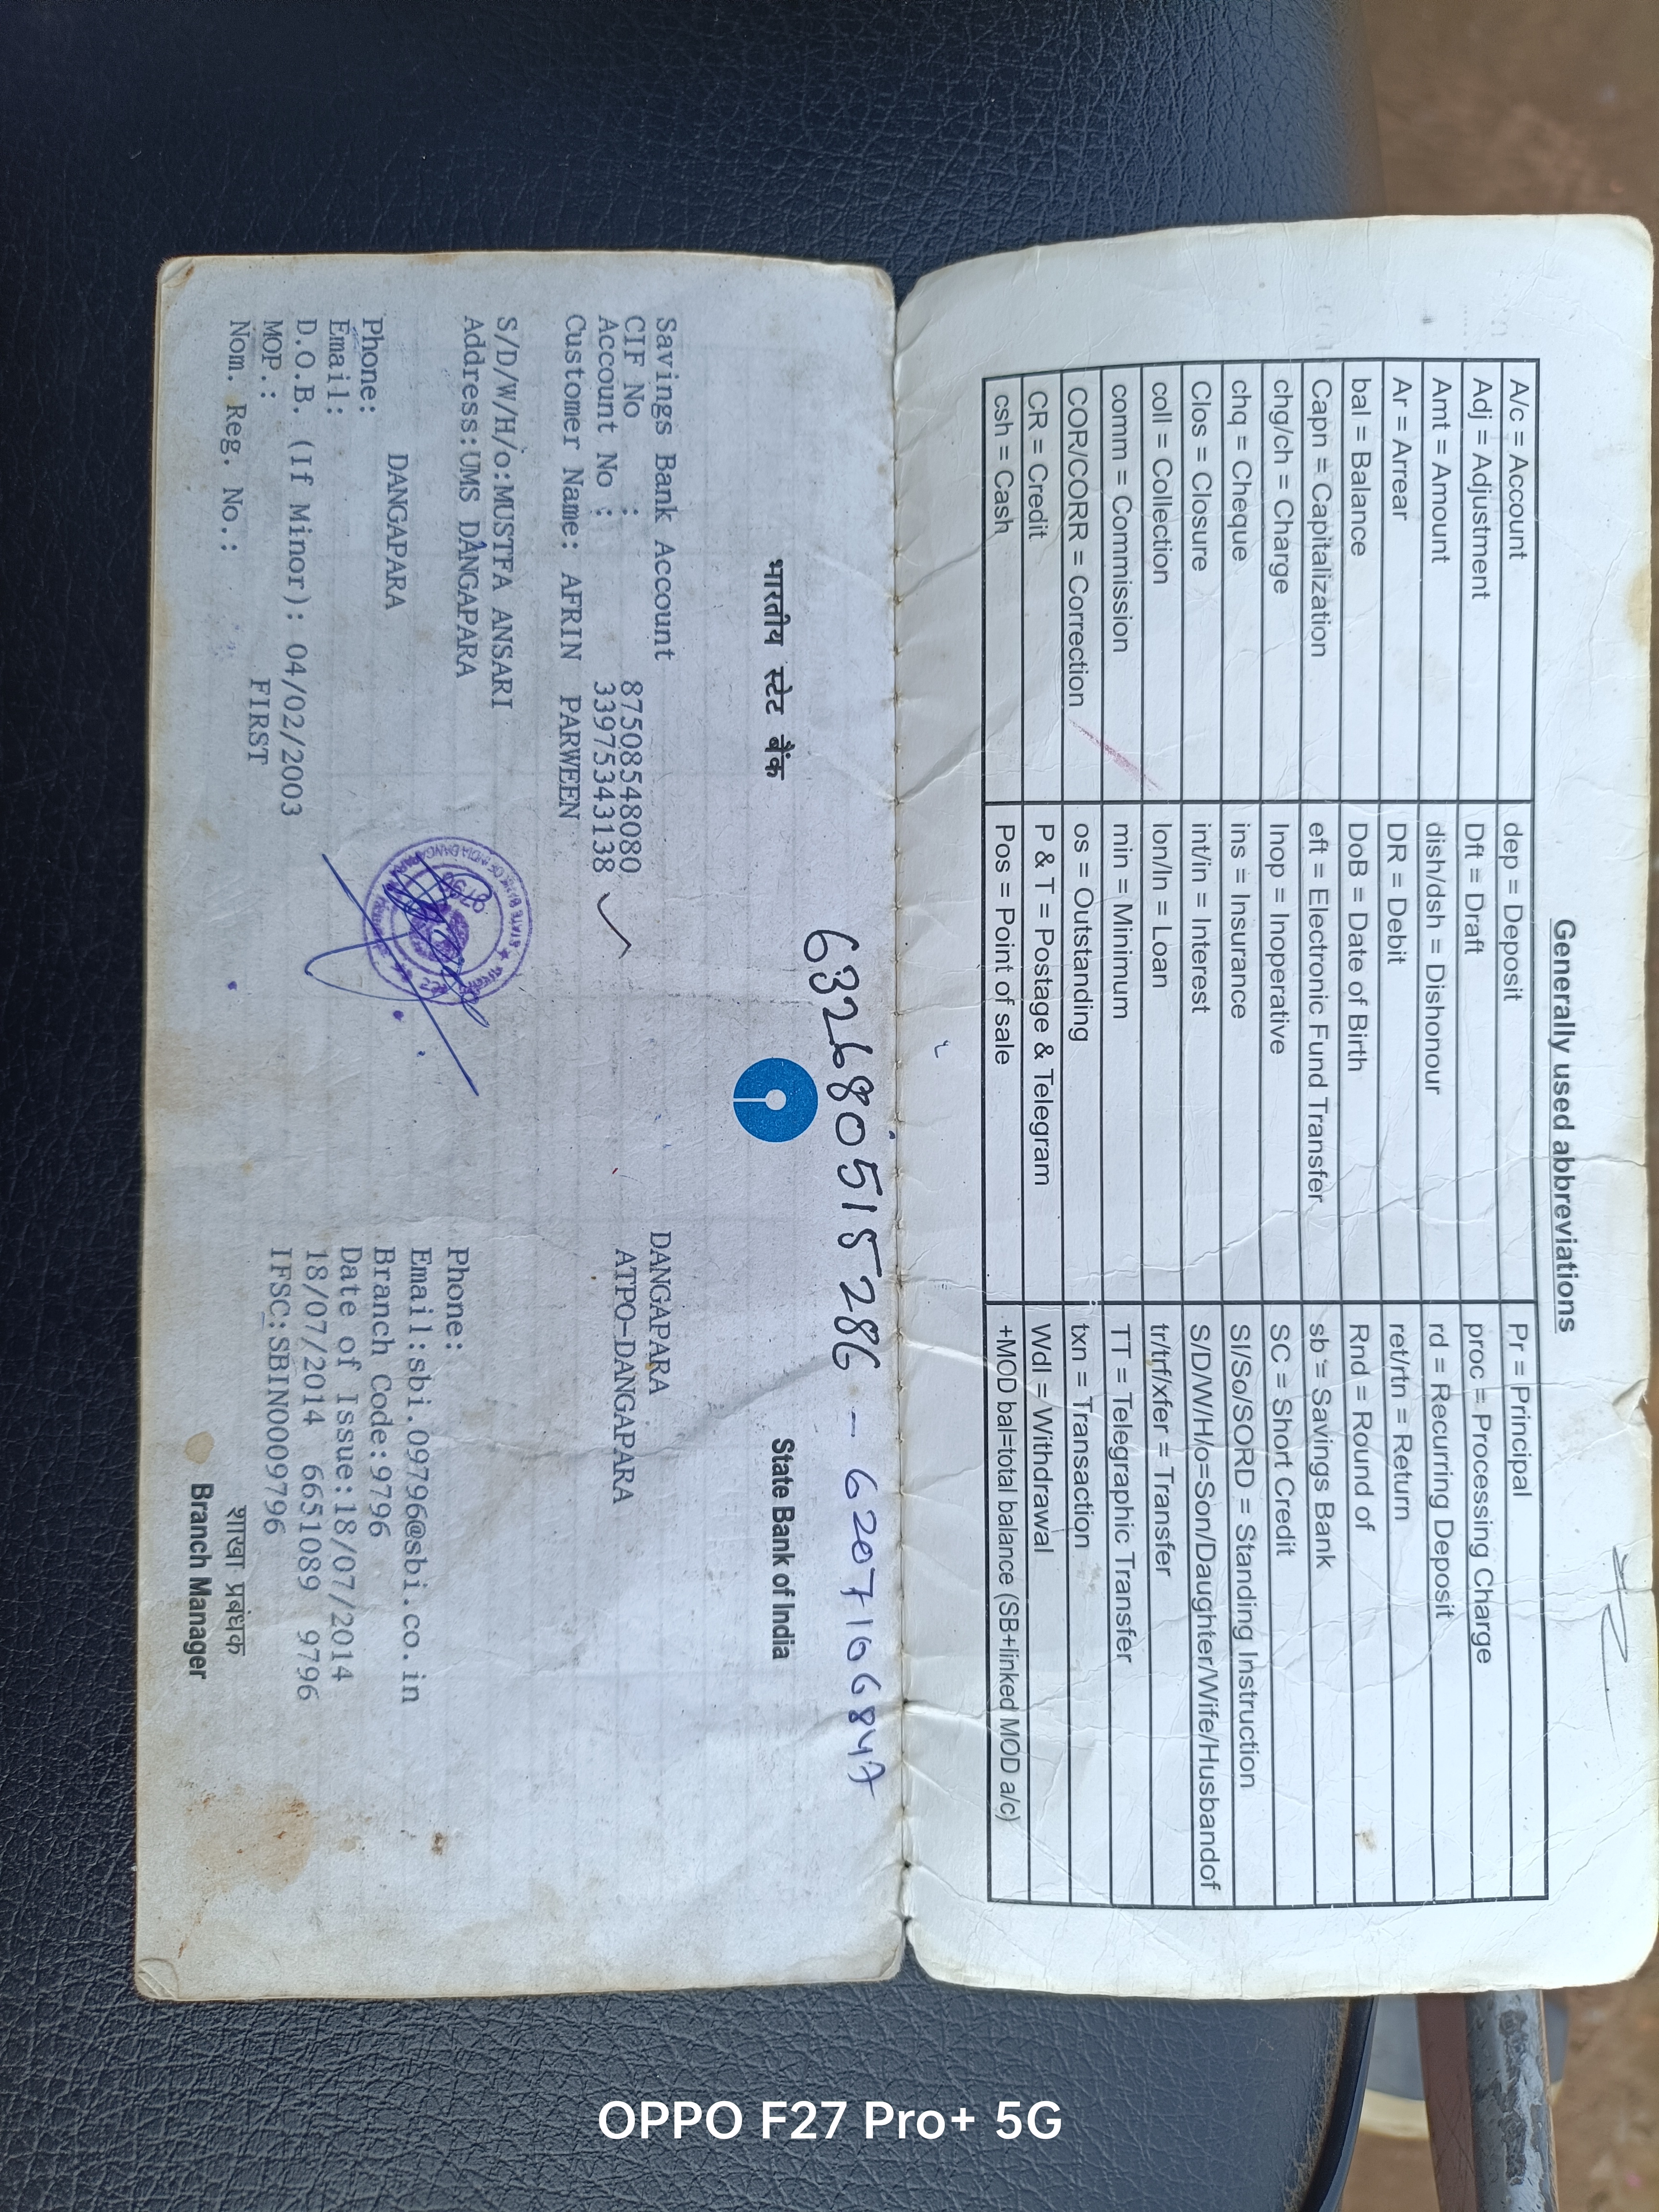 Generally used abbreviations
A/c = Account	dep = Deposit	Pr = Principal
Adj = Adjustment	Dft = Draft	proc = Processing Charge
Amt = Amount	dish/dsh = Dishonour	rd = Recurring Deposit
Ar = Arrear	DR = Debit	ret/rtn = Return
bal = Balance	DoB = Date of Birth	Rnd = Round of
Capn = Capitalization	eft = Electronic Fund Transfer	sb = Savings Bank
chg/ch = Charge	Inop = Inoperative	SC = Short Credit
chq = Cheque	ins = Insurance	SI/So/SORD = Standing Instruction
Clos = Closure	int/in = Interest	S/D/W/H/o=Son/Daughter/Wife/Husbandof
coll = Collection	lon/ln = Loan	tr/trf/xfer = Transfer
comm = Commission	min = Minimum	TT = Telegraphic Transfer
COR/CORR = Correction	os = Outstanding	txn = Transaction
CR = Credit	P & T = Postage & Telegram	Wdl = Withdrawal
csh = Cash	Pos = Point of sale	+MOD bal=total balance (SB+linked MOD a/c)
632680515286 - 6207106847
भारतीय स्टेट बैंक	State Bank of India
Savings Bank Account	DANGAPARA
CIF No : 87508548080	ATPO-DANGAPARA
Account No : 33975343138
Customer Name: AFRIN PARWEEN
S/D/W/H/o:MUSTFA ANSARI
Address:UMS DANGAPARA	Phone:
Email:sbi.09796@sbi.co.in
DANGAPARA	Branch Code:9796
Phone:	Date of Issue:18/07/2014
Email:	18/07/2014 6651089 9796
D.O.B. (If Minor): 04/02/2003	IFSC:SBIN0009796
MOP.: FIRST
Nom. Reg. No.:	शाखा प्रबंधक
Branch Manager
OPPO F27 Pro+ 5G